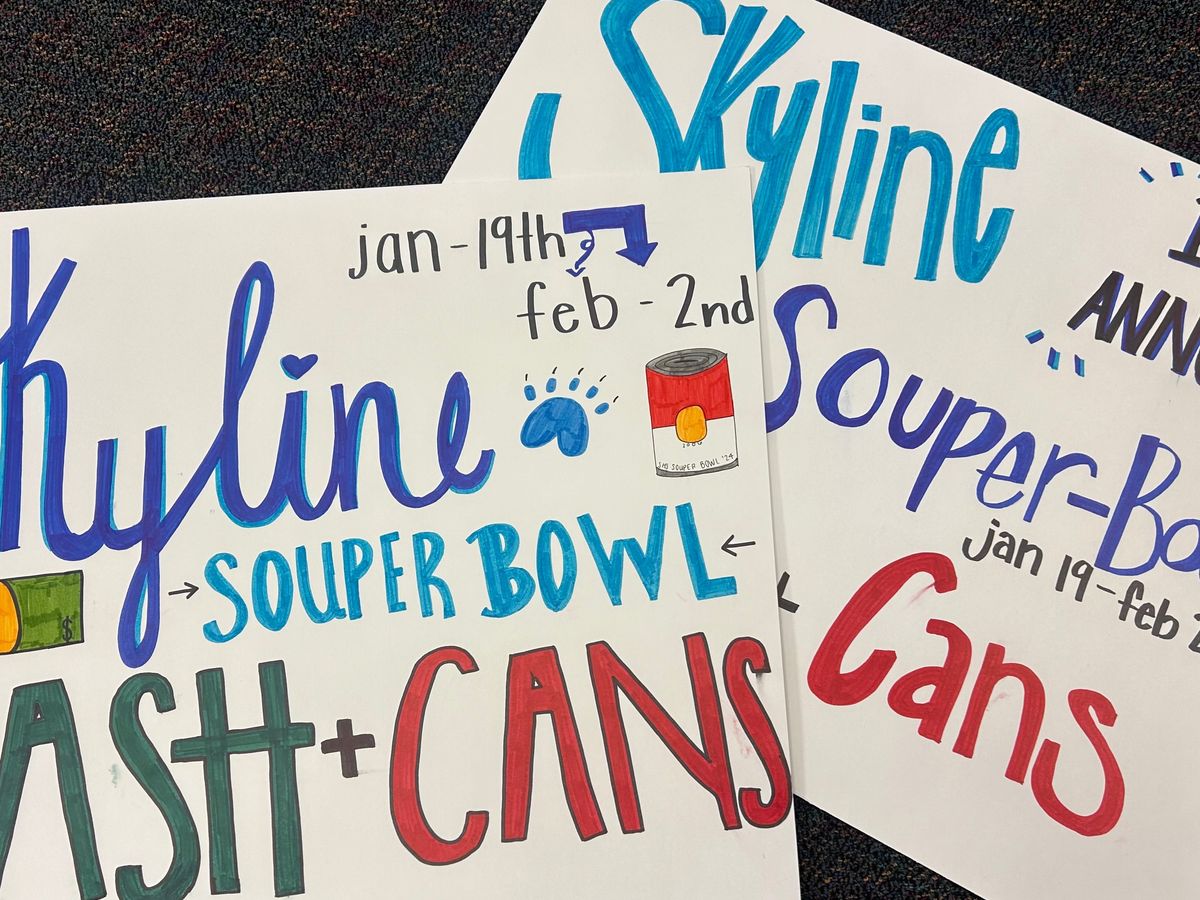 jan-19th
feb-2nd
Skyline
SOUPER BOWL '24
→ SOUPER BOWL ←
$
ASH + CANS
Skyline
ANN
Souper-Bo
jan 19-feb 2
Cans